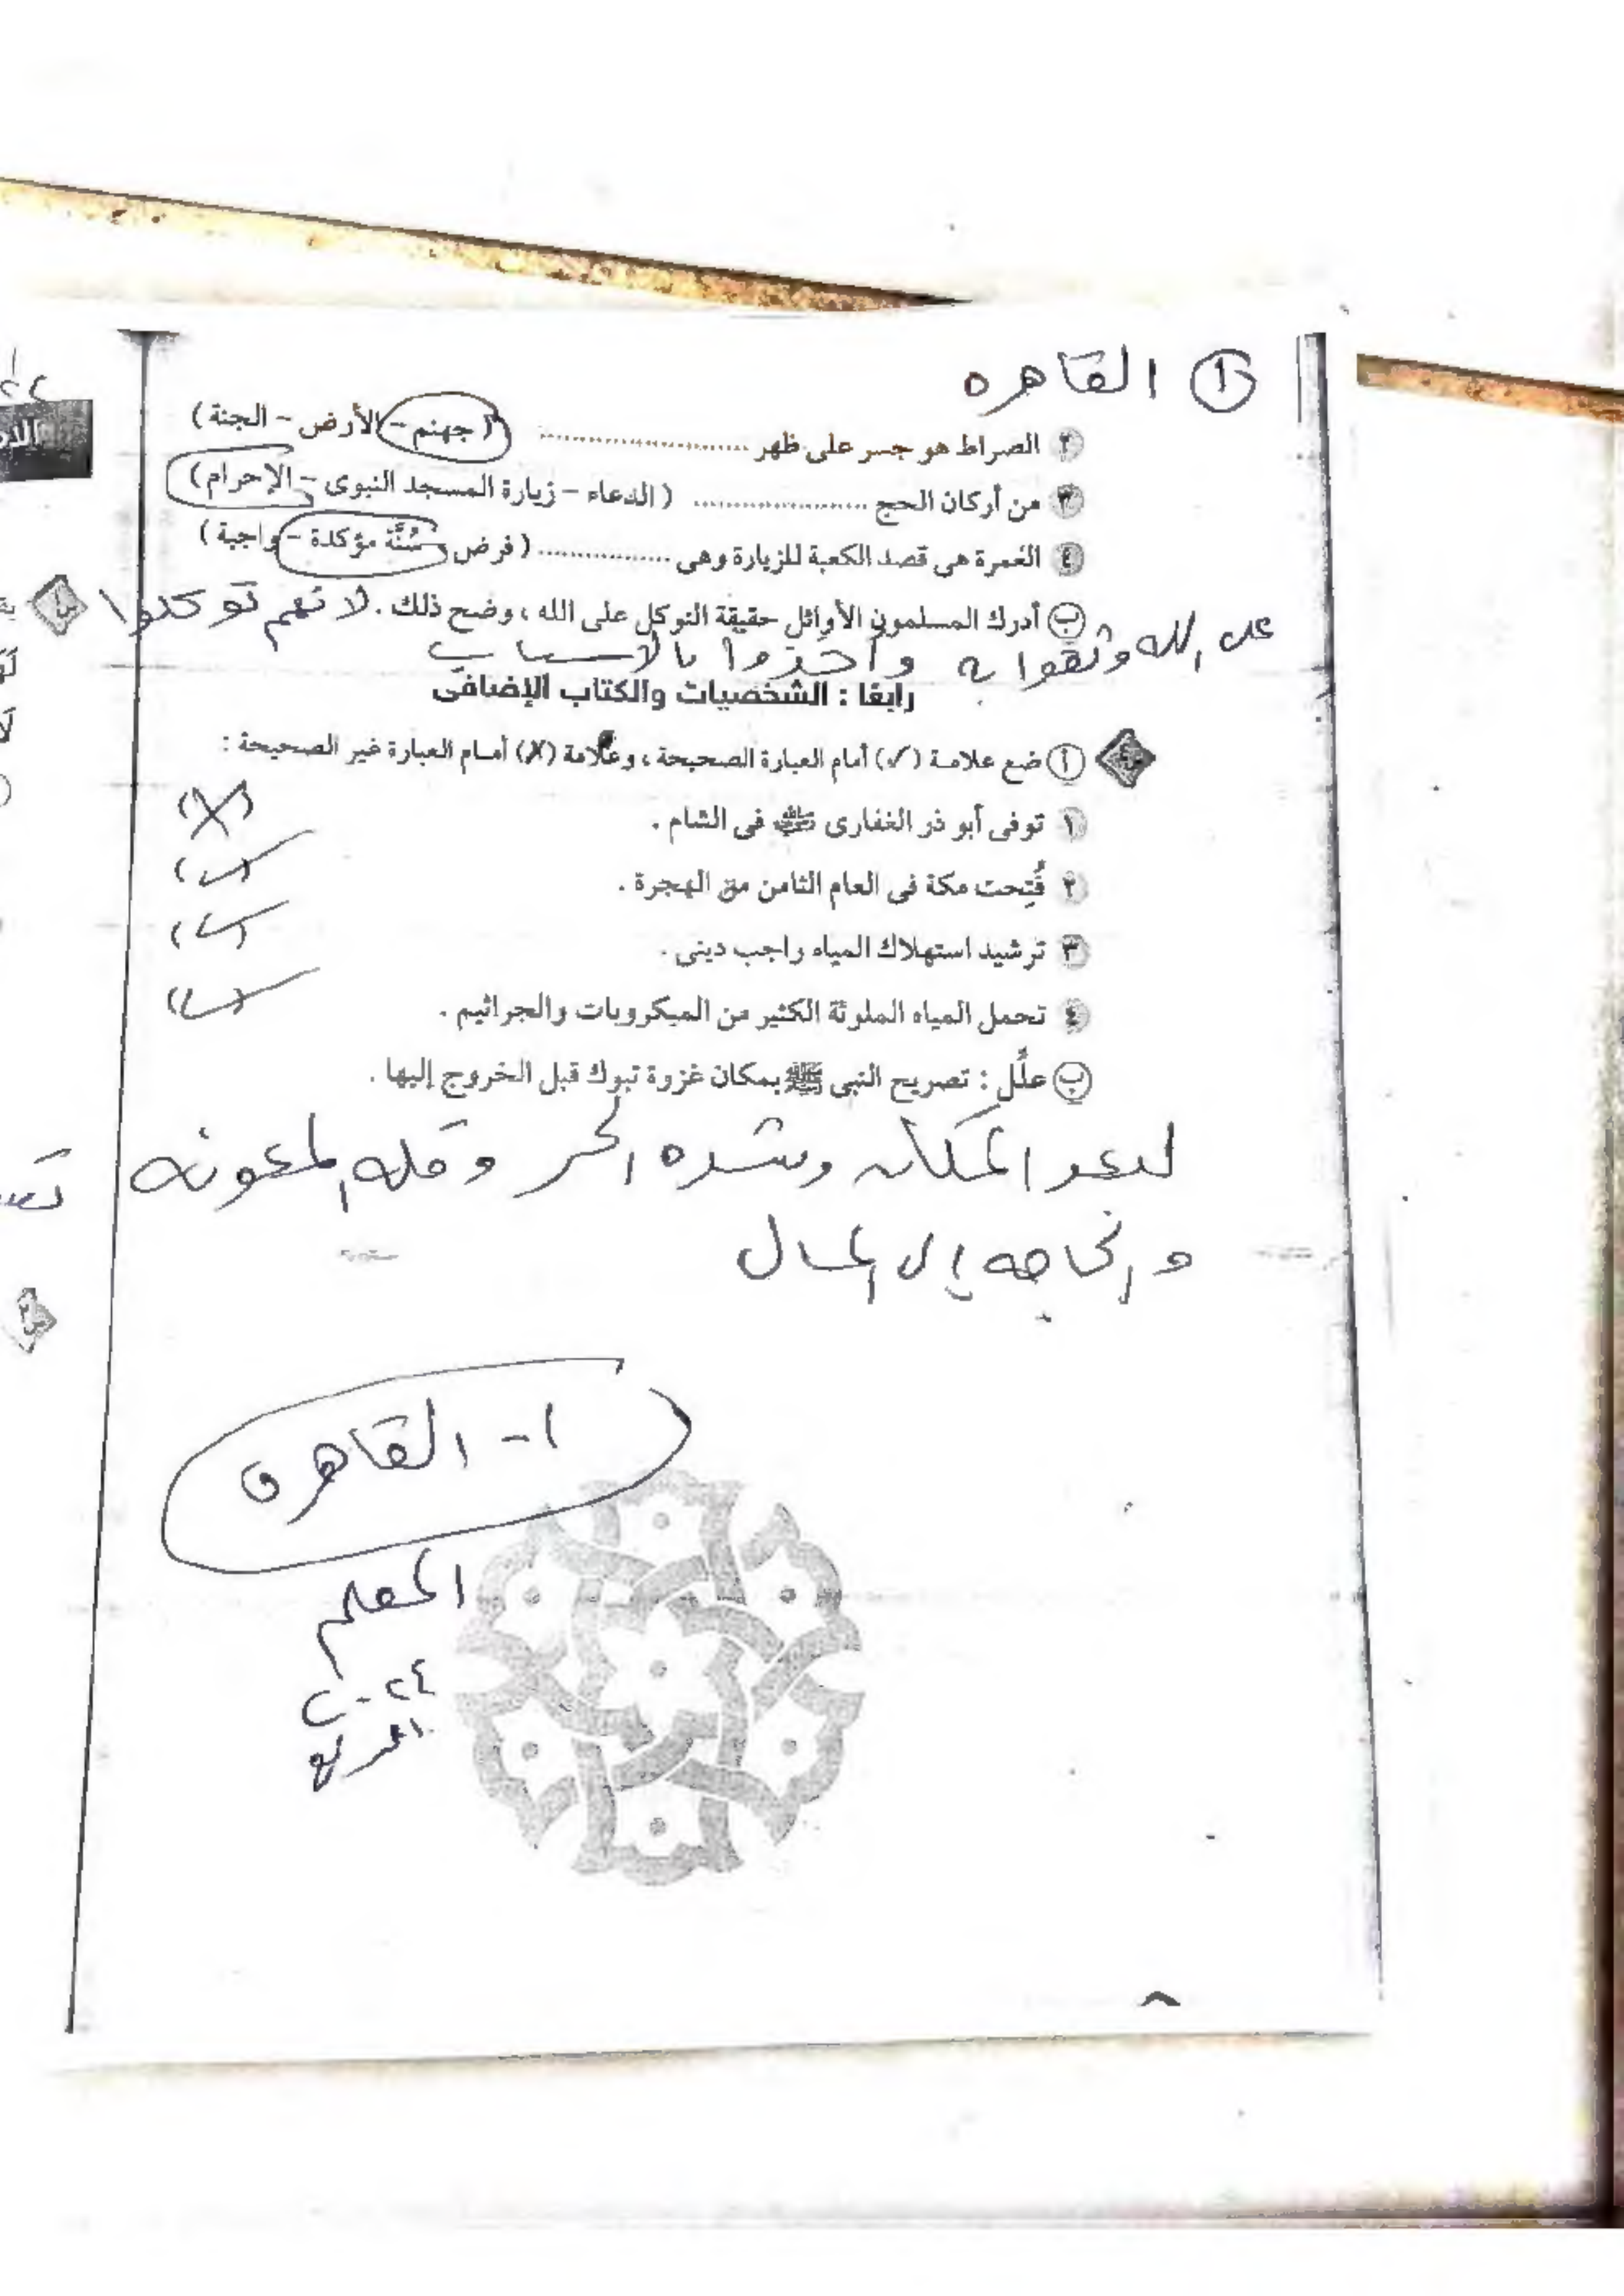 ١ القاهره
٢ الصراط هو جسر على ظهر .................... ( جهنم - الأرض - الجنة )
٣ من أركان الحج .................... ( الدعاء - زيارة المسجد النبوى - الإحرام )
٤ العمرة هى قصد الكعبة للزيارة وهى ................ ( فرض - سُنَّة مؤكدة - واجبة )
ب أدرك المسلمون الأوائل حقيقة التوكل على الله ، وضح ذلك . لانهم توكلوا
على الله وثقوا به وأخذوا بالأسباب
رابعًا : الشخصيات والكتاب الإضافى
أ ضع علامة (✓) أمام العبارة الصحيحة ، وعلامة (✗) أمام العبارة غير الصحيحة :
١ توفى أبو ذر الغفارى رضي الله عنه فى الشام . (✗)
٢ فُتِحت مكة فى العام الثامن من الهجرة . (✓)
٣ ترشيد استهلاك المياه واجب دينى . (✓)
٤ تحمل المياه الملوثة الكثير من الميكروبات والجراثيم . (✓)
ب علِّل : تصريح النبى ﷺ بمكان غزوة تبوك قبل الخروج إليها .
لبعد المكان وشده الحر وقله المعونه
والحاجه إلى المال
١- القاهرة
المعلم
٢٠٢٤
٨